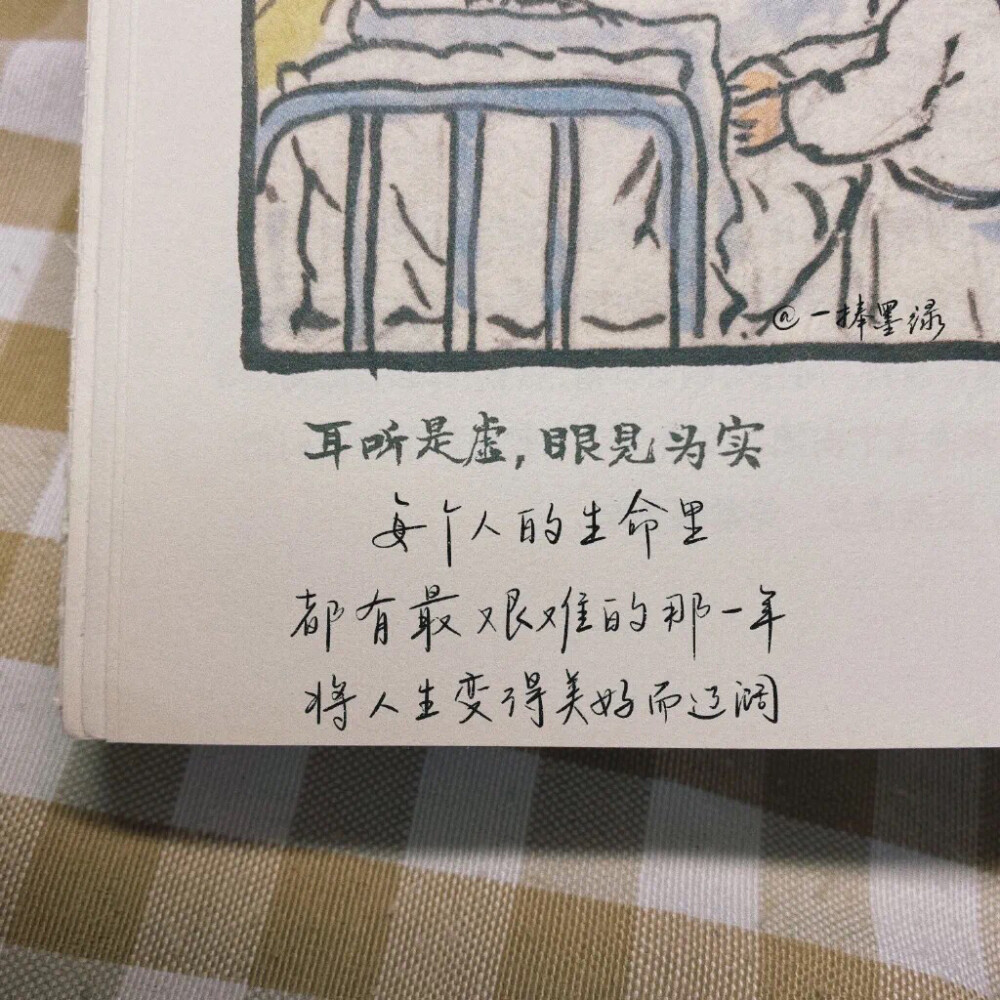 @一捧墨绿
耳听是虚,眼见为实
每个人的生命里
都有最艰难的那一年
将人生变得美好而辽阔